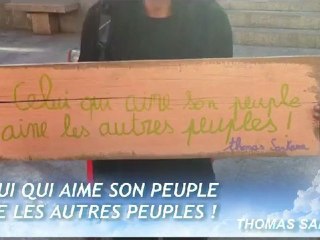 Celui qui aime son peuple
aime les autres peuples !
Thomas Sankara
UI QUI AIME SON PEUPLE
E LES AUTRES PEUPLES !
THOMAS SAN